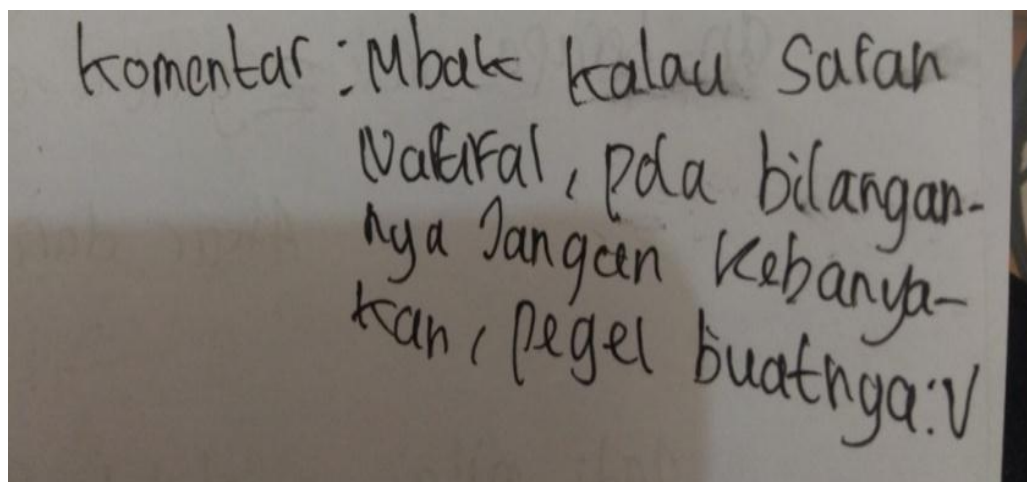 Komentar : Mbak Kalau Saran
Natural, pda bilangan-
nya Jangan Kebanya-
kan, pegel buatnya :V